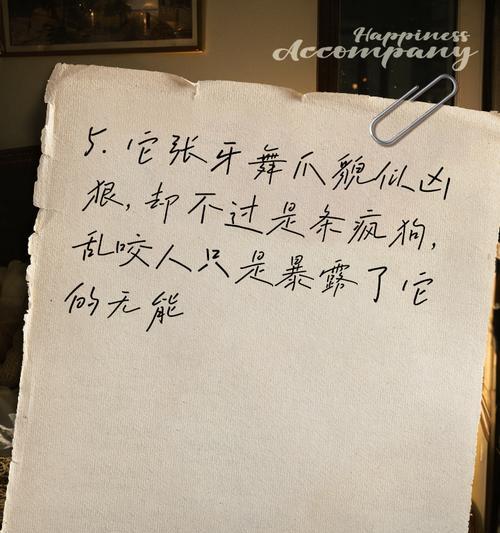 Happiness
Accompany
5. 它张牙舞爪貌似凶
狠，却不过是条疯狗，
乱咬人只是暴露了它
的无能